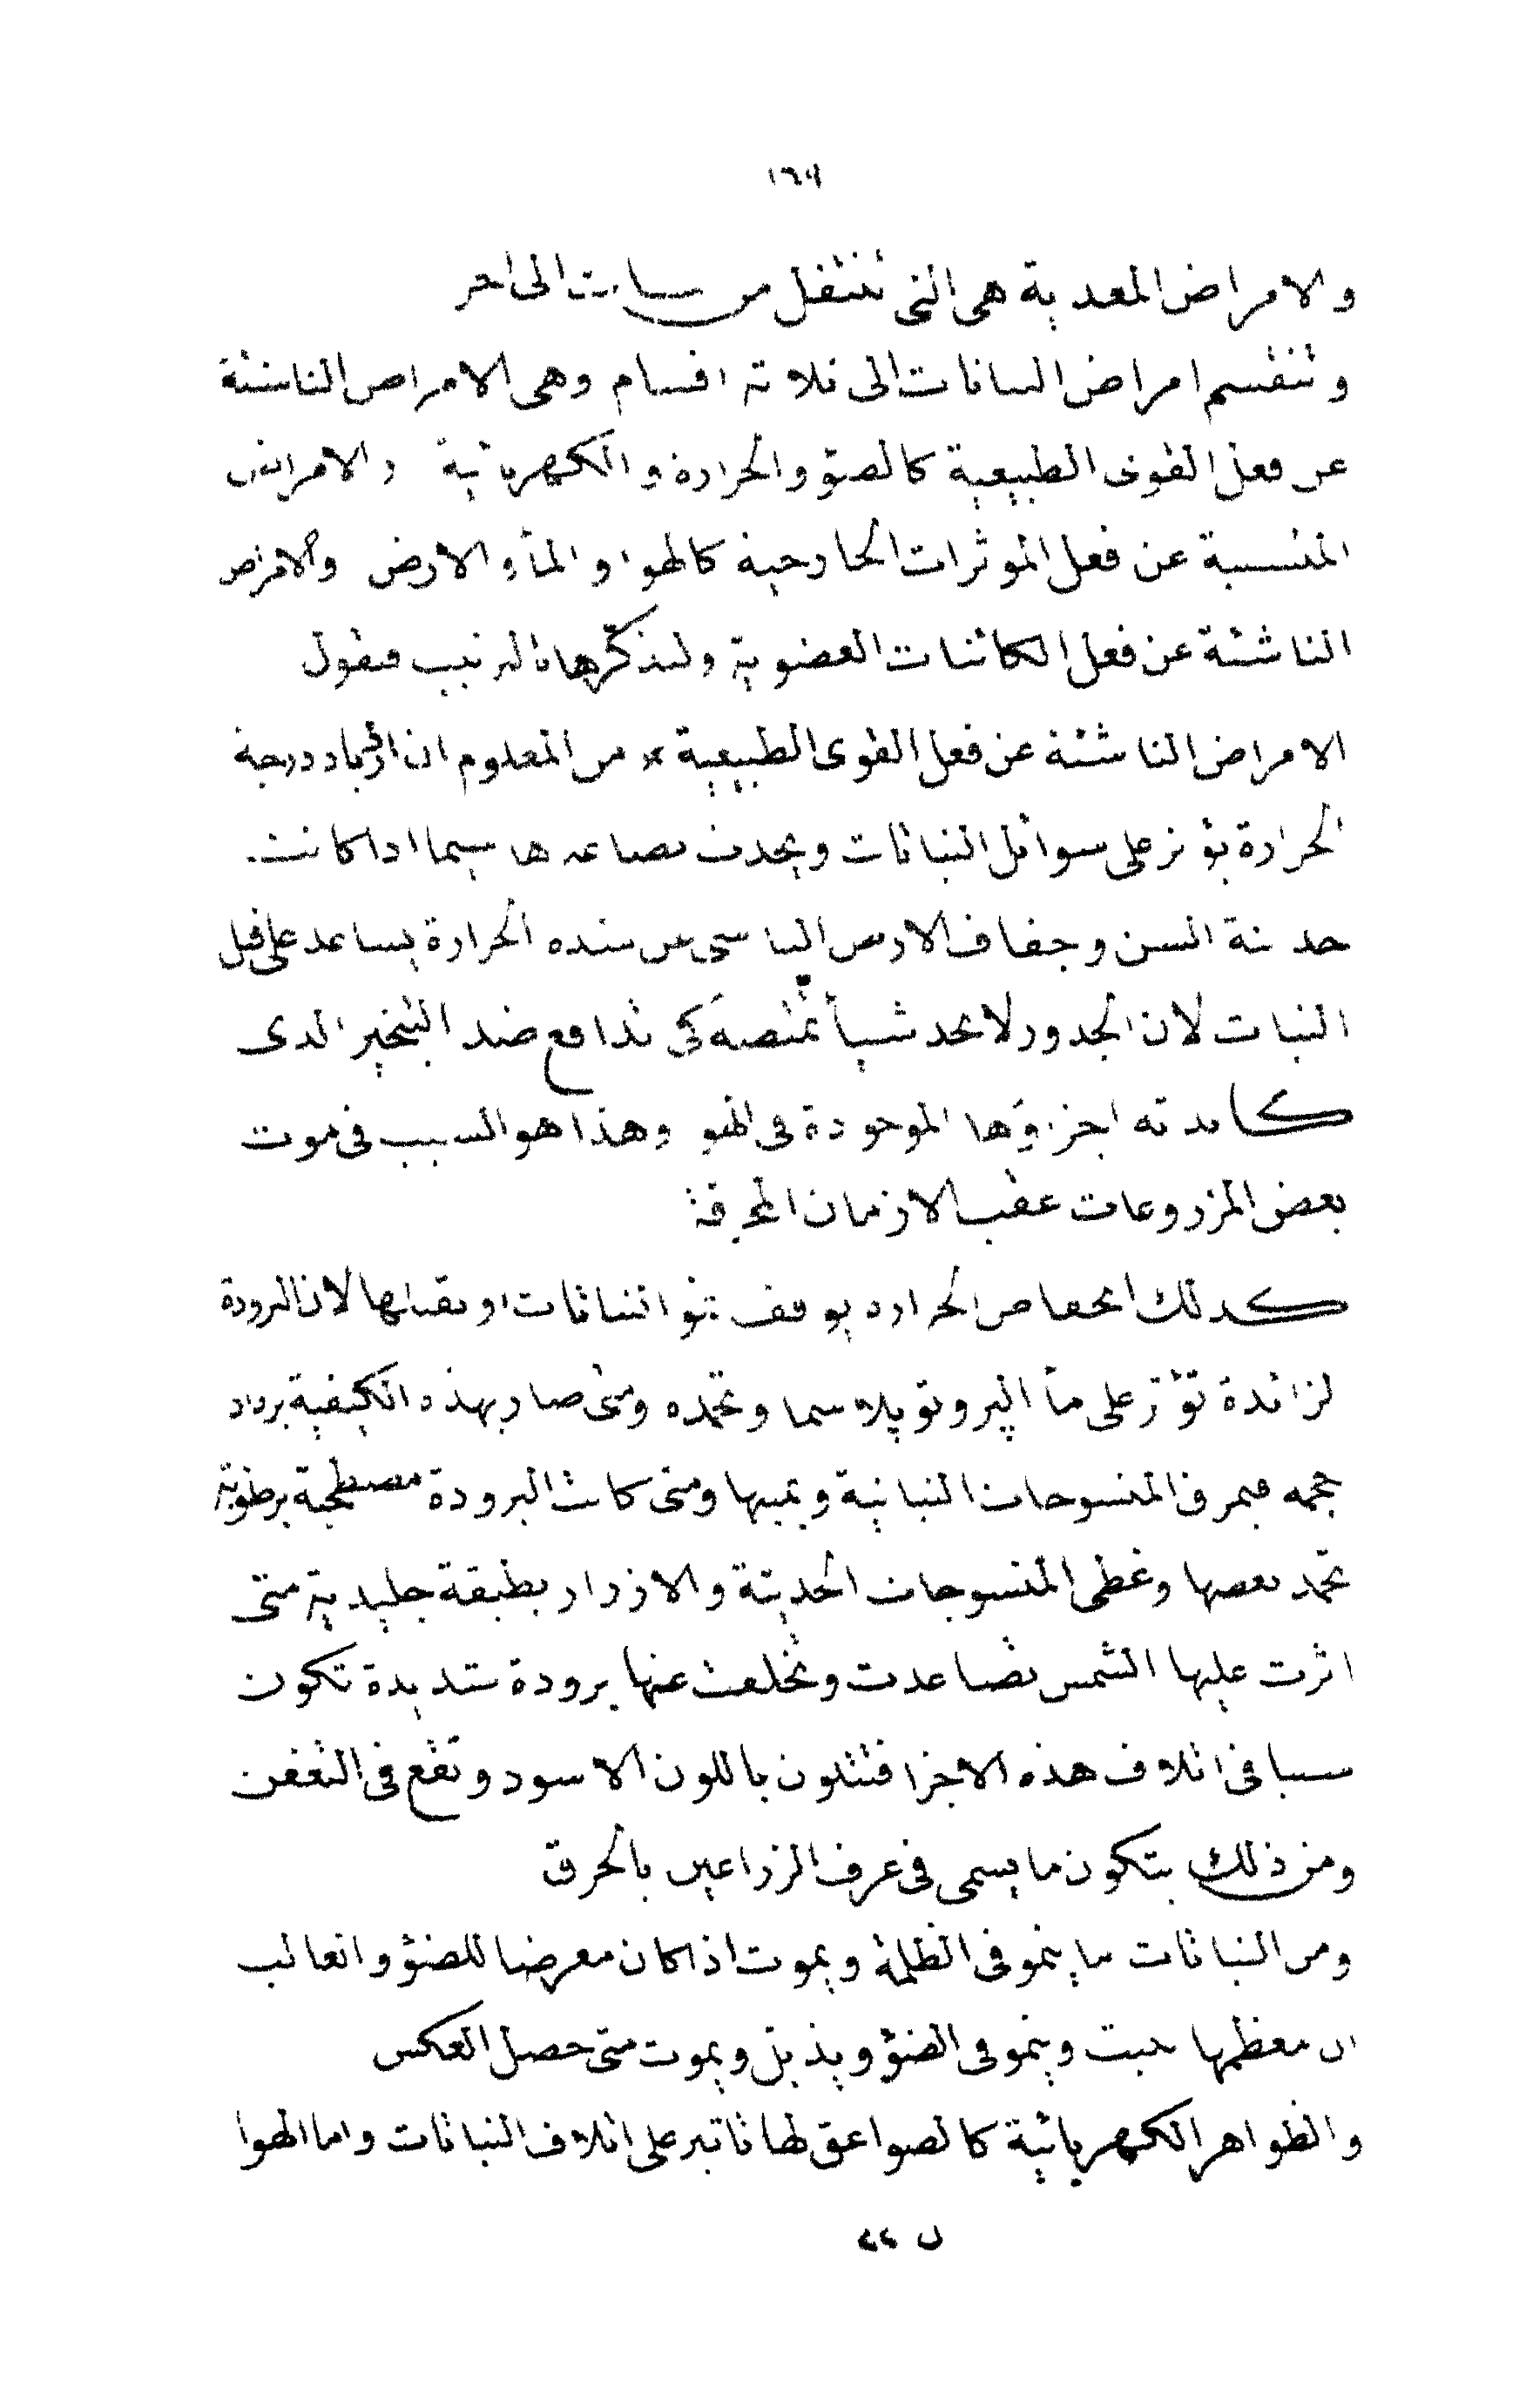 ١٦٩
والامراض المعدية هى التى تنتقل من نبات الى اخر
وتنقسم امراض النباتات الى ثلاثة اقسام وهى الامراض الناشئة
عن فعل القوى الطبيعية كالضؤ والحرارة والكهربائية والامراض
المتسببة عن فعل الموثرات الخارجية كالهوا والمأ والارض والامراض
الناشئة عن فعل الكائنات العضوية ولنذكرها بالترتيب فنقول
الامراض الناشئة عن فعل القوى الطبيعية * من المعلوم ان ازدياد درجة
الحرارة يؤثر على سوائل النباتات ويحدث تصاعدها سيما اذا كانت
حديثة السن وجفاف الارض الناشى عن شدة الحرارة يساعد على قتل
النبات لان الجدور لا تجد شيأ تمتصه كى تدافع ضد التبخير الدى
كابدته اجزؤها الموجودة فى الهو وهذا هو السبب فى موت
بعض المزروعات عقب الازمان المحرقة
كدلك انخفاض الحرارة يوقف نمو النباتات او يقتلها لان البرودة
لزائدة تؤثر على مأ البروتوپلاسما وتجمده ومتى صار بهذه الكيفية يزداد
حجمه فيمزق المنسوجات النباتية ويميتها ومتى كانت البرودة مصطحبة برطوبة
تجمد بعضها وغطى المنسوجات الحديثة والازرار بطبقة جليدية متى
اثرت عليها الشمس تصاعدت وتخلفت عنها برودة شديدة تكون
سببا فى اتلاف هذه الاجزا فتتلون باللون الاسود وتقع فى التعفن
ومن ذلك يتكون ما يسمى فى عرف الزراعين بالحرق
ومن النباتات ما ينمو فى الظلمة ويموت اذا كان معرضا للضؤ والغالب
ان معظمها ينبت وينمو فى الضؤ ويذبل ويموت متى حصل العكس
والظواهر الكهربائية كالصواعق لها تاثير على اتلاف النباتات واما الهوا
ن ٢٢